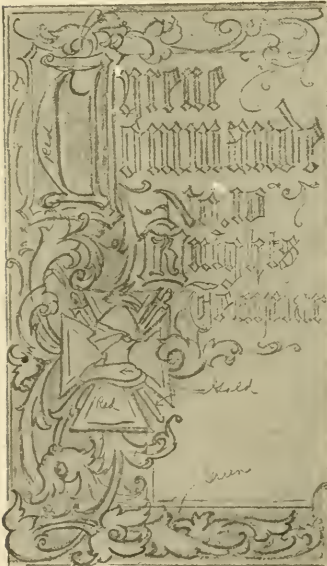 Cyrene
Red
ommande
No. 10
Knights
Templar
Gold
Red
Green